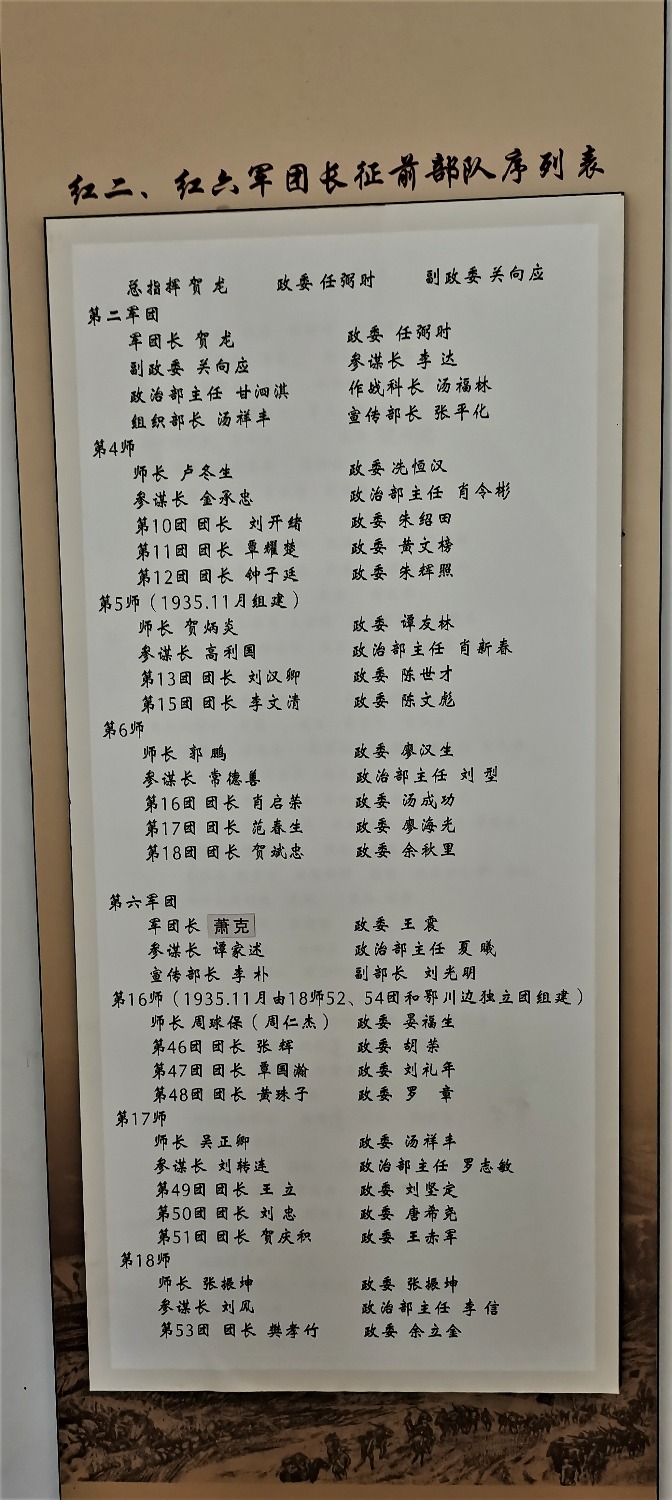 红二、红六军团长征前部队序列表
总指挥 贺龙 政委 任弼时 副政委 关向应
第二军团
军团长 贺龙 政委 任弼时
副政委 关向应 参谋长 李达
政治部主任 甘泗淇 作战科长 汤福林
组织部长 汤祥丰 宣传部长 张平化
第4师
师长 卢冬生 政委 冼恒汉
参谋长 金承忠 政治部主任 肖令彬
第10团 团长 刘开绪 政委 朱绍田
第11团 团长 覃耀楚 政委 黄文榜
第12团 团长 钟子廷 政委 朱辉照
第5师（1935.11月组建）
师长 贺炳炎 政委 谭友林
参谋长 高利国 政治部主任 肖新春
第13团 团长 刘汉卿 政委 陈世才
第15团 团长 李文清 政委 陈文彪
第6师
师长 郭鹏 政委 廖汉生
参谋长 常德善 政治部主任 刘型
第16团 团长 肖启荣 政委 汤成功
第17团 团长 范春生 政委 廖海光
第18团 团长 贺斌忠 政委 余秋里
第六军团
军团长 萧克 政委 王震
参谋长 谭家述 政治部主任 夏曦
宣传部长 李朴 副部长 刘光明
第16师（1935.11月由18师52、54团和鄂川边独立团组建）
师长 周球保（周仁杰） 政委 晏福生
第46团 团长 张辉 政委 胡荣
第47团 团长 覃国瀚 政委 刘礼年
第48团 团长 黄珠子 政委 罗章
第17师
师长 吴正卿 政委 汤祥丰
参谋长 刘转连 政治部主任 罗志敏
第49团 团长 王立 政委 刘坚定
第50团 团长 刘忠 政委 唐希尧
第51团 团长 贺庆积 政委 王赤军
第18师
师长 张振坤 政委 张振坤
参谋长 刘风 政治部主任 李信
第53团 团长 樊孝竹 政委 余立金